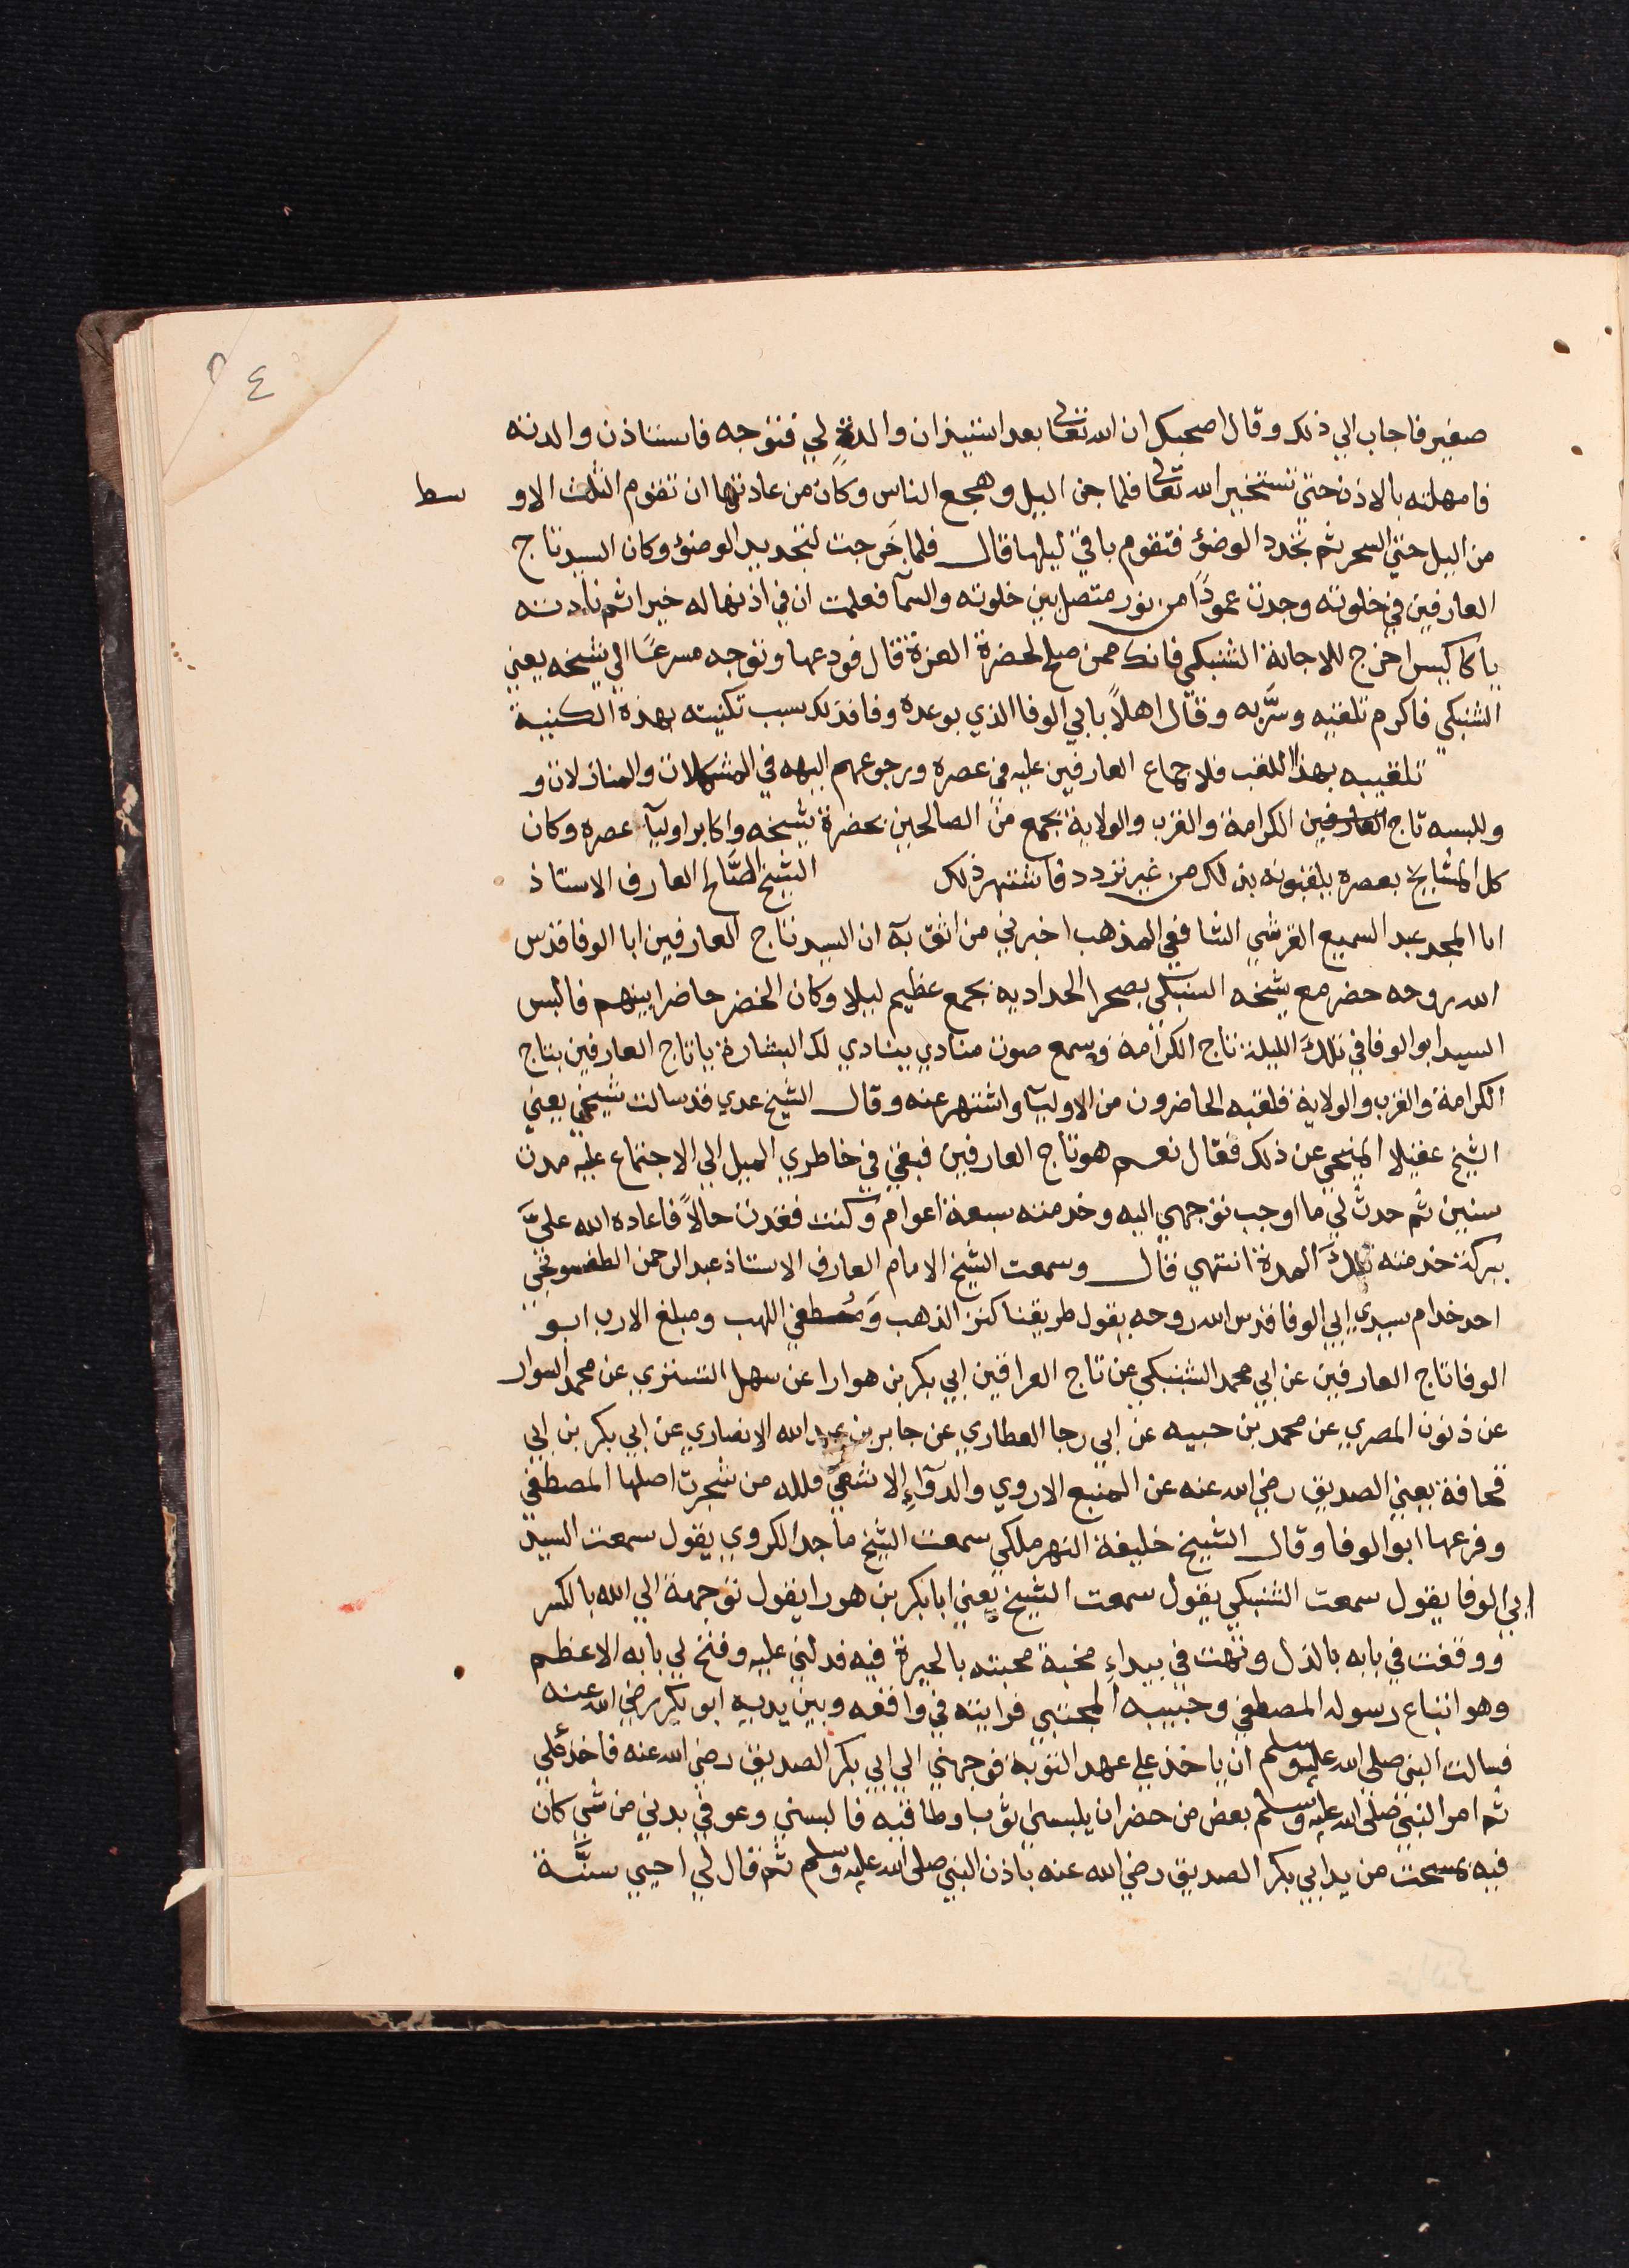 ٤
صغير فاجاب الي ذلك وقال اصحبك ان الله تعالى بعد استيذان والدةٍ لي فتوجه فاستاذن والدته
فامهلته بالاذن حتي تستخير الله تعالى فلما جن اليل وهجع الناس وكان من عادتها ان تقوم الثلث الاو سط
من اليل حتي السحر ثم تجدد الوضؤ فتقوم باقي ليلها قال فلما خَرجت لتجديد الوضؤ وكان السيد تاج
العارفين في خلوته وجدت عموداً من نور متصل بين خلوته والسمآ فعلمت ان في اذنها له خيرا ثم نادته
يا كاكيس اخرج للاجابة الشنبكي فانك ممن صلح لحضرة العزة قال فودعها وتوجه مسرعًا الي شيخه يعني
الشنبكي فاكرم تلقيه وسَّر به وقال اهلاً بابي الوفا الذي بوعده وفا فذلك سبب تكنيته بهذه الكنية
تلقيبه بهذا اللقب فلاجماع العارفين عليه في عصره ورجوعهم اليهه في المشكلات والمنازلات و
وللبسه تاج العارفين الكرامة والقرب والولاية بجمع من الصالحين بحضرة شيخه واكابر اوليآ عصره وكان
كل المشايخ بعصره يلقبونه بذلك من غير تردد فاشتهر ذلك الشيخ الصَّالح العارف الاستاذ
ابا المجد عبد السميع القرشي الشافعي المذهب اخبرني من اثق به ان السيد تاج العارفين ابا الوفا قدس
الله روحه حضر مع شيخه الشنبكي بصحرا الحداديه بجمع عظيم ليلا وكان الخضر حاضرا بينهم فالبس
السيد ابو الوفا في تلك الليلة تاج الكرامة وسمع صوت منادي ينادي لك البشارة يا تاج العارفين بتاج
الكرامة والقرب والولاية فلقبه الحاضرون من الاوليآ واشتهر عنه وقال الشيخ عدي قد سالت شيخي يعني
الشيخ عقيلا المنبجي عن ذلك فقال نعم هو تاج العارفين فبقي في خاطري الميل الي الاجتماع عليه مدت
سنين ثم حدث لي ما اوجب توجهي اليه وخدمته سبعة اعوام وكنت فقدت حالاً فاعاده الله عليَّ
ببركة خدمته تلك المدة انتهي قال وسمعت الشيخ الامام العارف الاستاذ عبد الرحمن الطفسونجي
احد خدام سيدي ابي الوفا قدس الله روحه يقول طريقنا كنز الذهب وَمُصطفي اللهب ومبلغ الارب ابو
الوفا تاج العارفين عن ابي محمد الشنبكي عن تاج العرافين ابي بكر بن هوارا عن سهل التستري عن محمد السوار
عن ذنون المصري عن محمد بن حبيه عن ابي رجا العطاري عن جابر بن عبد الله الانصاري عن ابي بكر بن ابي
قحافة يعني الصديق رضي الله عنه عن المنبع الاروي والدوَآءِ الاشفي فلله من شجرت اصلها المصطفي
وفرعها ابو الوفا وقال الشيخ خليفة النهر ملكي سمعت الشيخ ماجد الكروي يقول سمعت السيد
ابي الوفا يقول سمعت الشنبكي يقول سمعت الشيخ يعني ابا بكر بن هورا يقول توجهة الي الله بالكسر
ووقفت في بابه بالذل وتهت في بيداءِ محبة محبته بالحيرة فيه فدلني عليه وفتح لي بابه الاعظم
وهو اتباع رسوله المصطفي وحبيبه المجتبي فرايته في واقعه وبين يديه ابو بكر رضي الله عنه
فسالت النبي صلى الله عليه وسلم ان ياخذ علي عهد التوبة فوجهني الي ابي بكر الصديق رضي الله عنه فاخذ علي
ثم امر النبي صلى الله عليه وسلم بعض من حضر ان يلبسني ثوبا وطاقيه فالبسني وعوفي بدني من شي كان
فيه بمسحت من يد ابي بكر الصديق رضي الله عنه باذن النبي صلى الله عليه وسلم ثم قال لي احيي سنَّة